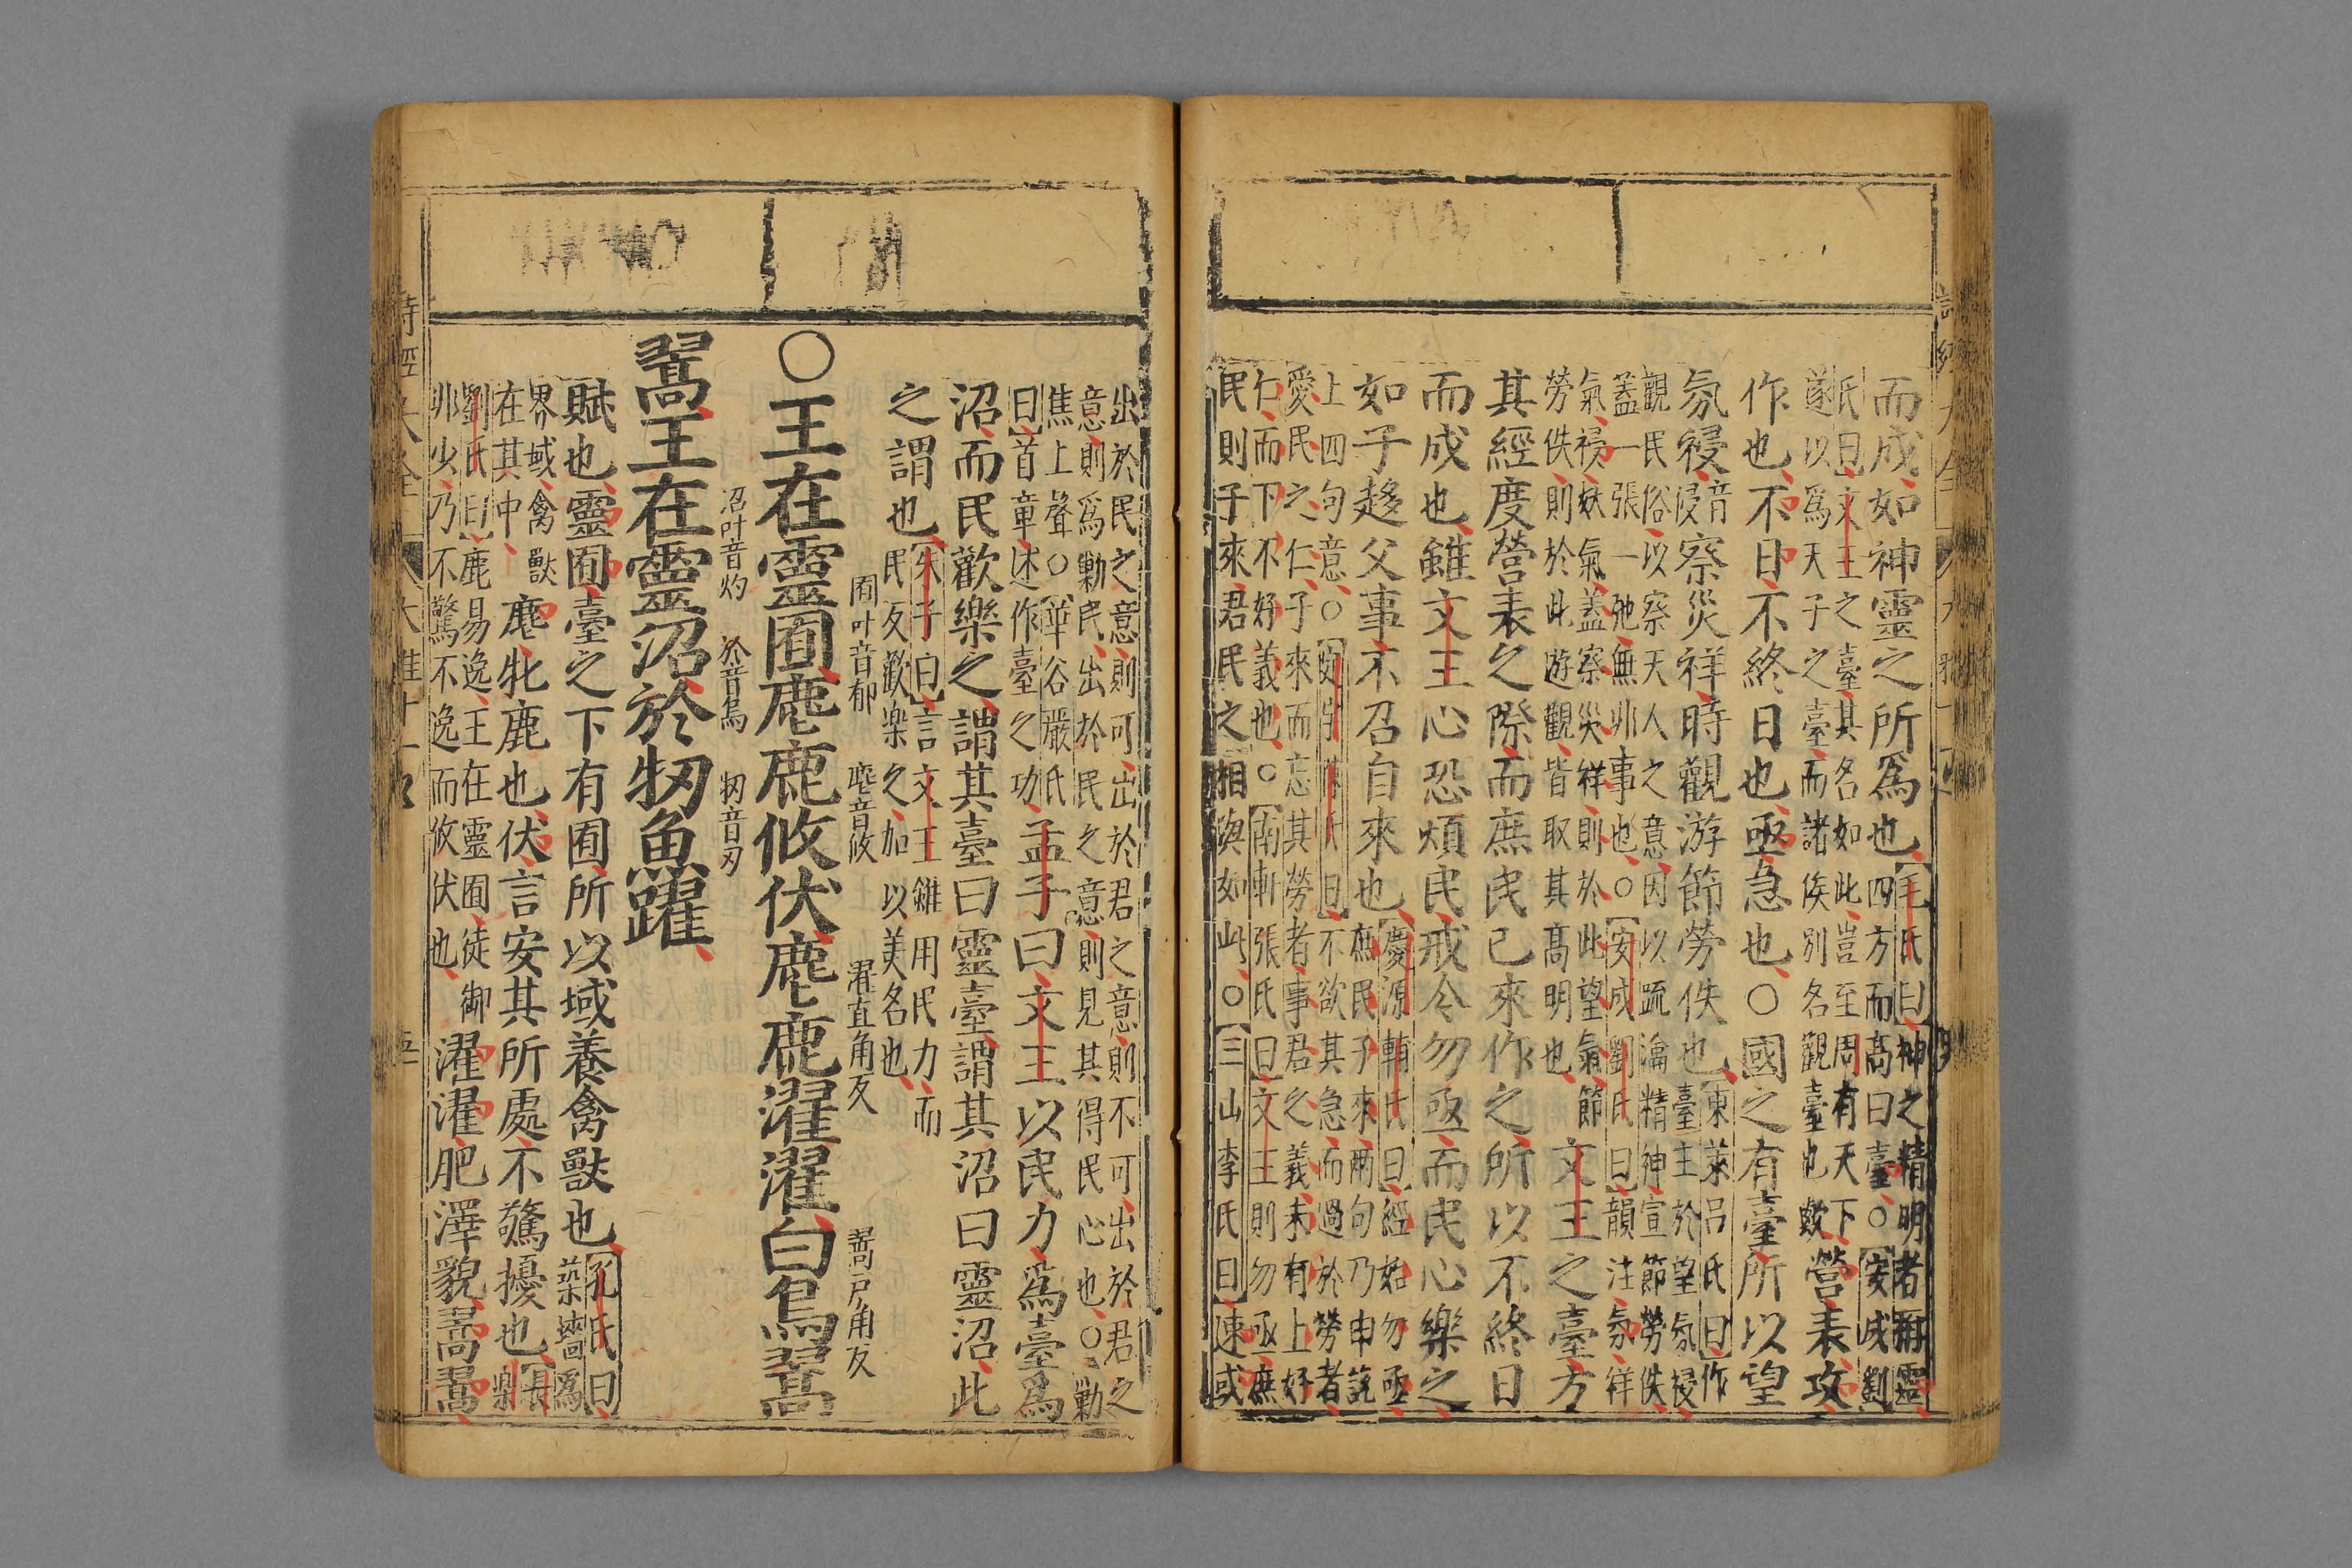 而成如神靈之所爲也毛氏曰神之精明者稱靈
四方而高曰臺○安成劉
氏曰文王之臺其名如此豈至周有天下
遂以爲天子之臺而諸侯別名觀臺也歟營表攻
作也不日不終日也亟急也○國之有臺所以望
氛祲音
浸察災祥時觀游節勞佚也東萊呂氏曰作
臺主於望氛祲
觀民俗以察天人之意因以疏瀹精神宣節勞佚
蓋一張一弛無非事也○安成劉氏曰韻注氛祥
氣祲妖氣蓋察災祥則於此望氣節
勞佚則於此遊觀皆取其高明也文王之臺方
其經度營表之際而庶民已來作之所以不終日
而成也雖文王心恐煩民戒令勿亟而民心樂之
如子趨父事不召自來也慶源輔氏曰經始勿亟
庶民子來兩句乃申說
上四句意○定宇陳氏曰不欲其急而過於勞者
愛民之仁子來而忘其勞者事君之義未有上好
仁而下不好義也○南軒張氏曰文王則勿亟庶
民則子來君民之相與如此○三山李氏曰速或
出於民之意則可出於君之意則不可出於君之
意則爲勦民出於民之意則見其得民心也○勦
焦上聲○華谷嚴氏
曰首章述作臺之功孟子曰文王以民力爲臺爲
沼而民歡樂之謂其臺曰靈臺謂其沼曰靈沼此
之謂也朱子曰言文王雖用民力而
民反歡樂之加以美名也
○王在靈囿麀鹿攸伏麀鹿濯濯白鳥翯
囿叶音郁 麀音攸 濯直角反 翯戶角反
翯王在靈沼於牣魚躍
沼叶音灼 於音烏 牣音刃
賦也靈囿臺之下有囿所以域養禽獸也孔氏曰
築墻爲
界域禽獸
在其中麀牝鹿也伏言安其所處不驚擾也長樂
劉氏曰鹿易逸王在靈囿徒御
非少乃不驚不逸而攸伏也濯濯肥澤貌翯翯
詩經大全
大雅十六
五